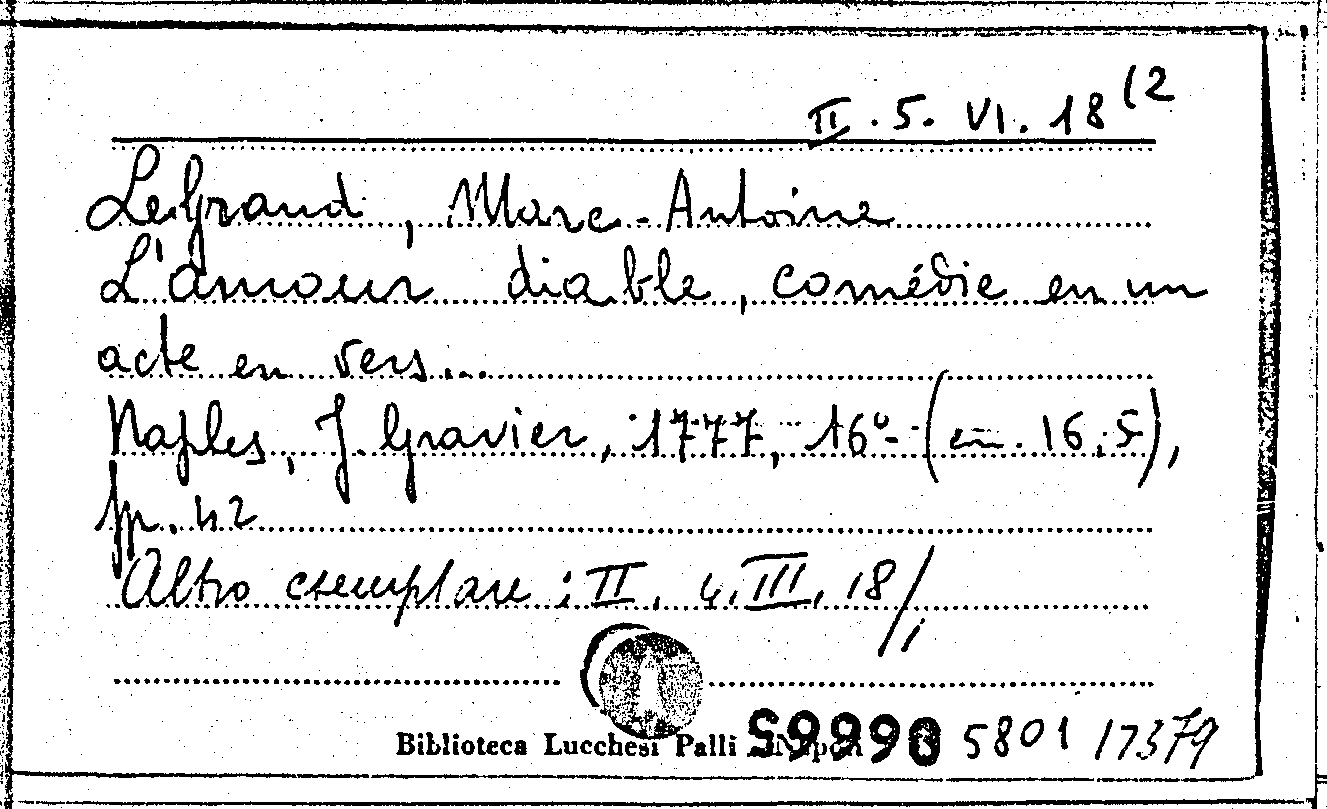 II. 5. VI. 18 (2
LeGrand, Marc-Antoine
L'amour diable, comédie en un
acte en vers...
Naples, J. Gravier, 1777, 16º (cm. 16,5),
pp. 42
Altro esemplare: II. 4. III. 18/1
Biblioteca Lucchesi Palli - Napoli 5801 17379